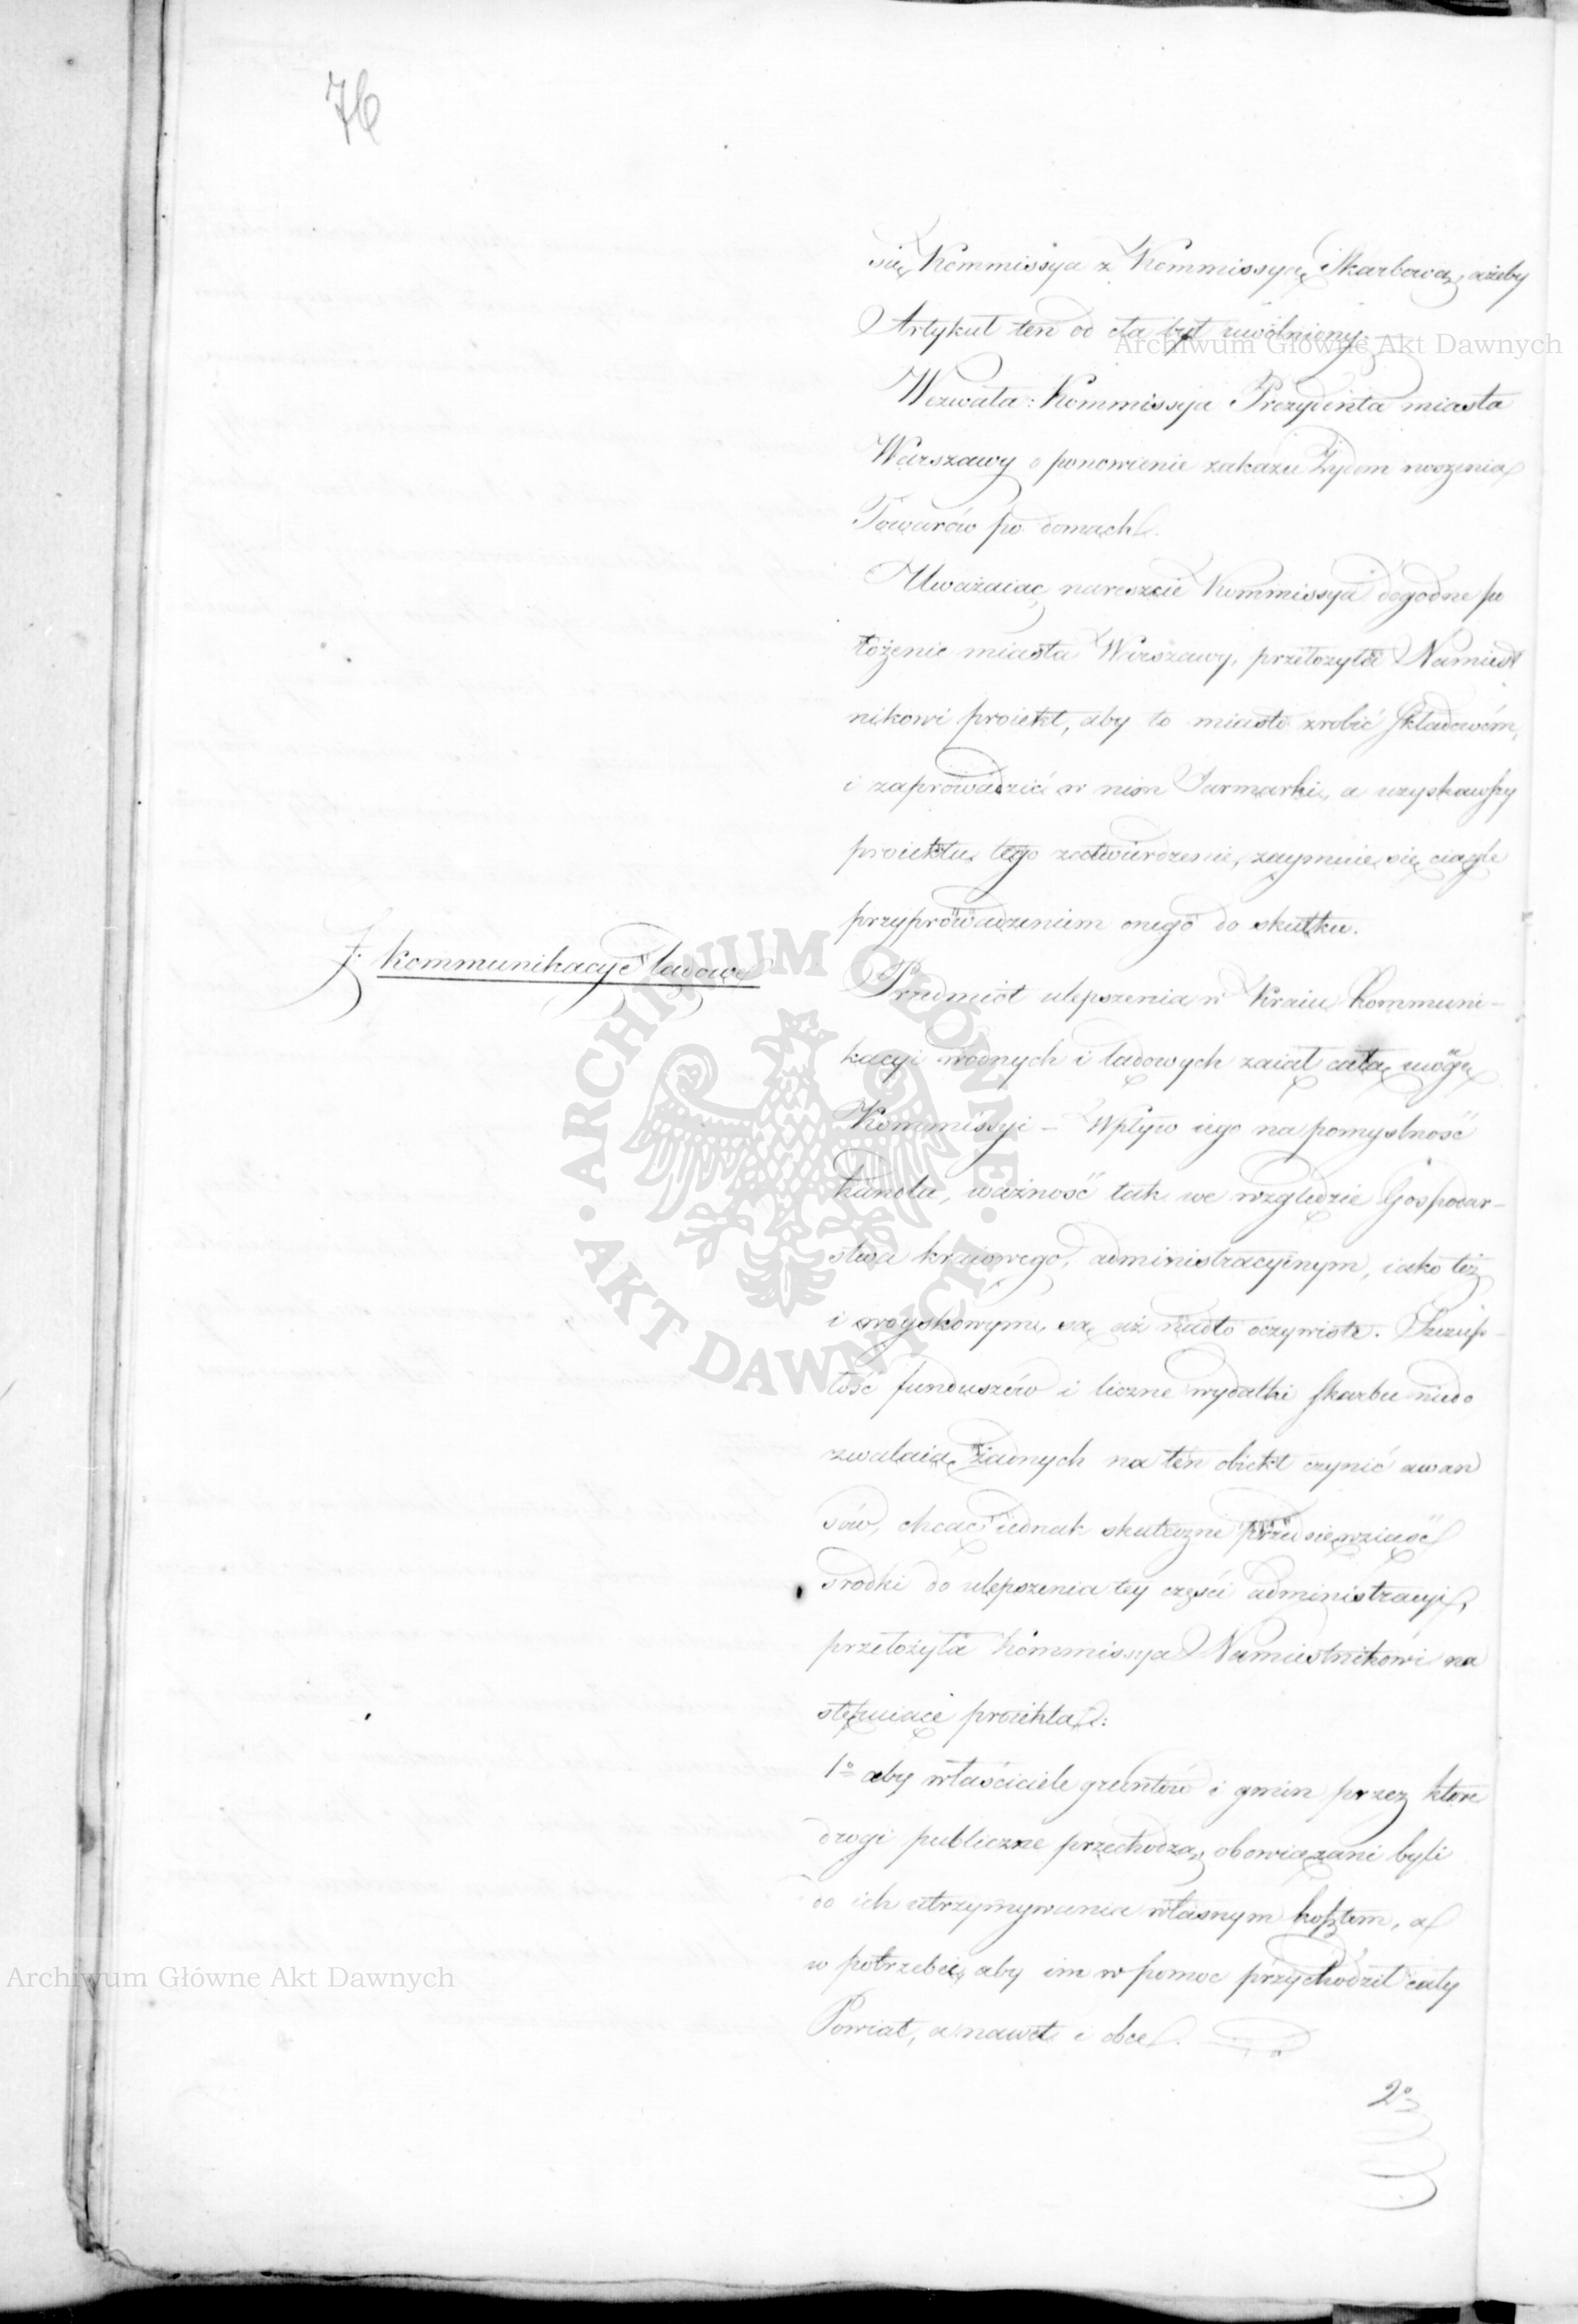 76
się Kommissya z Kommissyą Skarbową, ażeby
Artykuł ten od cła był uwolniony.
Archiwum Główne Akt Dawnych
Wezwała Kommissya Prezydenta miasta
Warszawy o ponowienie zakazu Żydom noszenia
Towarów po domach.
Uważaiąc nareszcie Kommissya dogodne po
łożenie miasta Warszawy, przełożyła Namiest
nikowi proiekt, aby to miasto zrobić składowém,
i zaprowadzić w nim Jarmarki, a uzyskawszy
proiektu tego zatwierdzenie, zaymuie się ciągle
przyprowadzeniem onego do skutku.
7. Kommunikacye lądowe
Przedmiot ulepszenia w Kraiu Kommuni-
kacyi wodnych i lądowych zaiął całą uwagę
Kommissyi – Wpływ iego na pomyślność
handlu, ważność tak we względzie Gospodar-
stwa kraiowego, administracyinym, iako też
i woyskowym, są aż nadto oczywiste. Szczup-
łość funduszów i liczne wydatki skarbu niedo
zwalaią żadnych na ten obiekt czynić awan
sów, chcąc iednak skuteczne przedsięwziąść
srodki do ulepszenia tey części administracyi,
przełożyła Kommissya Namiestnikowi na
stępuiące proiekta:
1o aby właściciele gruntów i gmin przez które
drogi publiczne przechodzą, obowiązani byli
do ich utrzymywania własnym kosztem, a
w potrzebie, aby im w pomoc przychodził cały
Powiat, a nawet i obce.
2o
Archiwum Główne Akt Dawnych
ARCHIWUM GŁÓWNE · AKT DAWNYCH ·